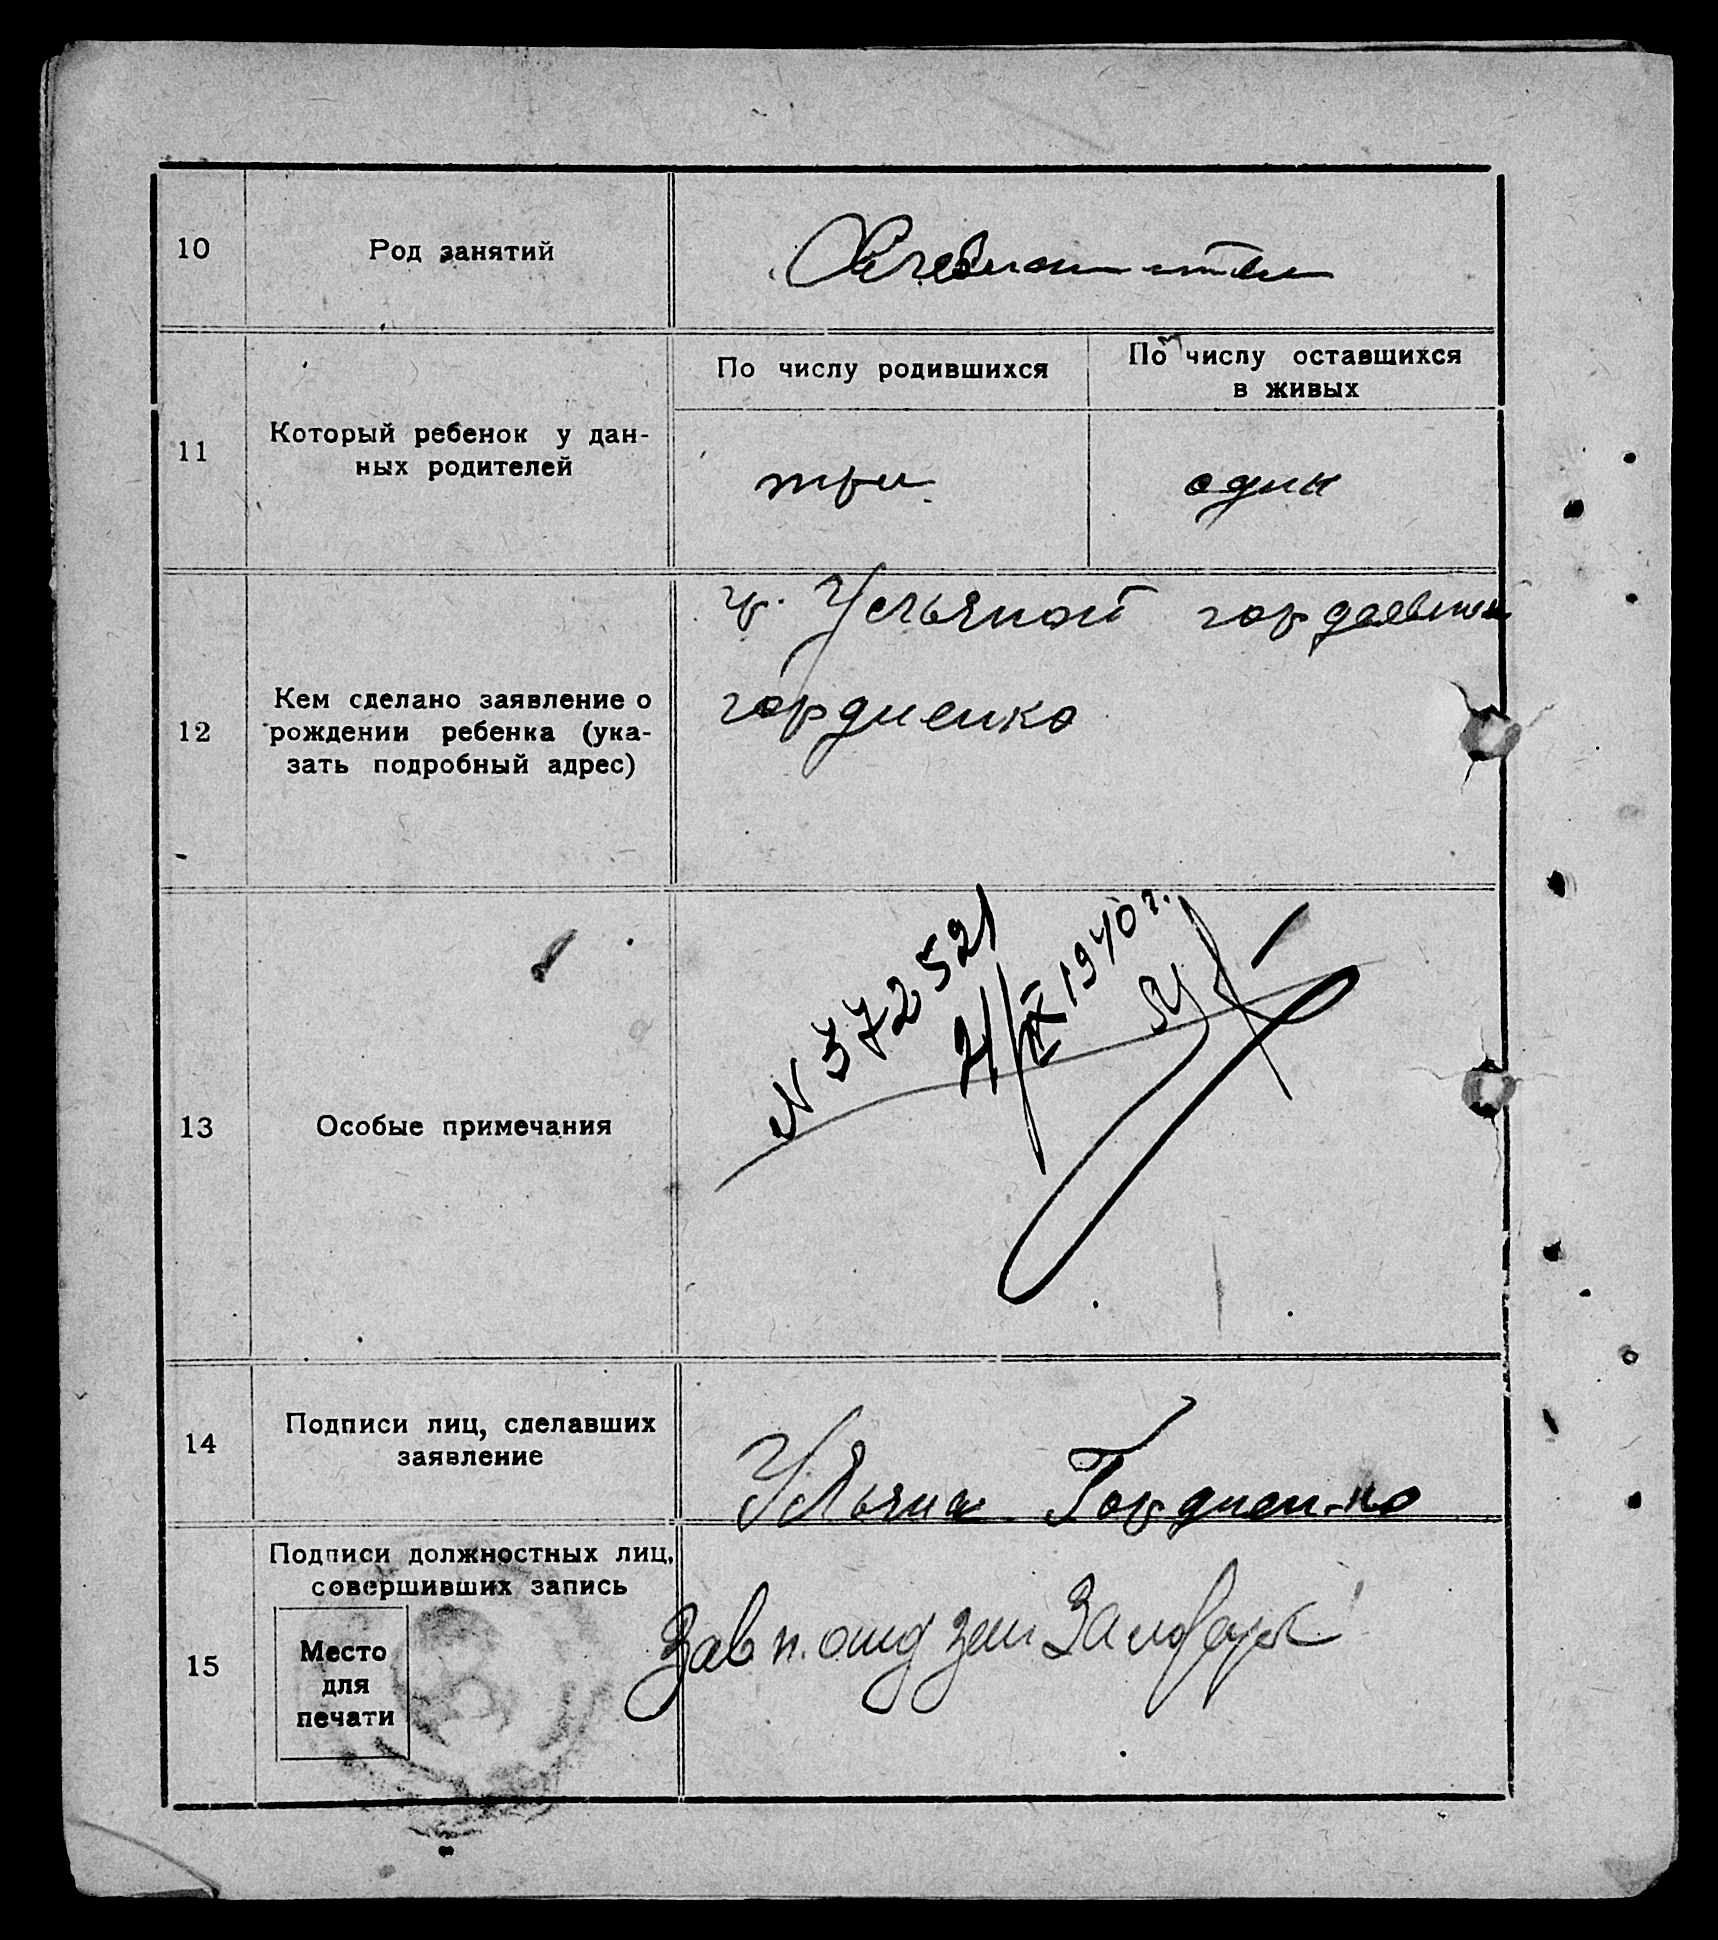 10
Род занятий
Хлебопашество
11
Который ребенок у дан-
ных родителей
По числу родившихся
По числу оставшихся
в живых
три
один
12
Кем сделано заявление о
рождении ребенка (ука-
зать подробный адрес)
гр. Ульяной
гордиенко
13
Особые примечания
N 372521
1940 г.
14
Подписи лиц, сделавших
заявление
Ульяна Гордиенко
15
Подписи должностных лиц,
совершивших запись
Место
для
печати
Зав